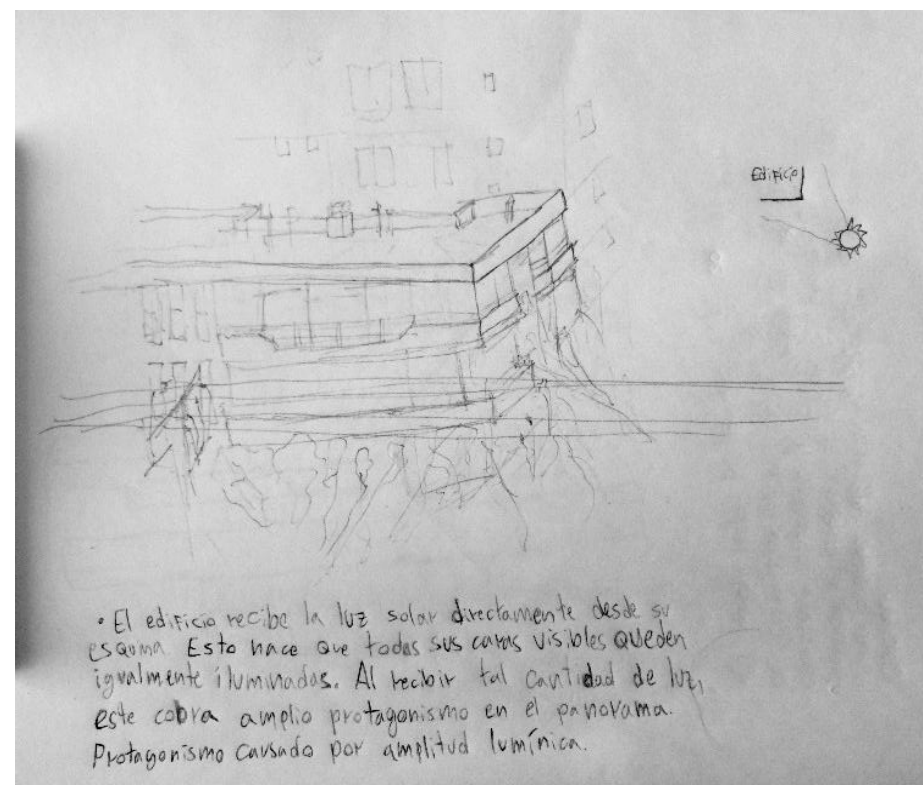 Edificio
• El edificio recibe la luz solar directamente desde su
esquina. Esto hace que todas sus caras visibles queden
igualmente iluminadas. Al recibir tal cantidad de luz,
este cobra amplio protagonismo en el panorama.
Protagonismo causado por amplitud lumínica.